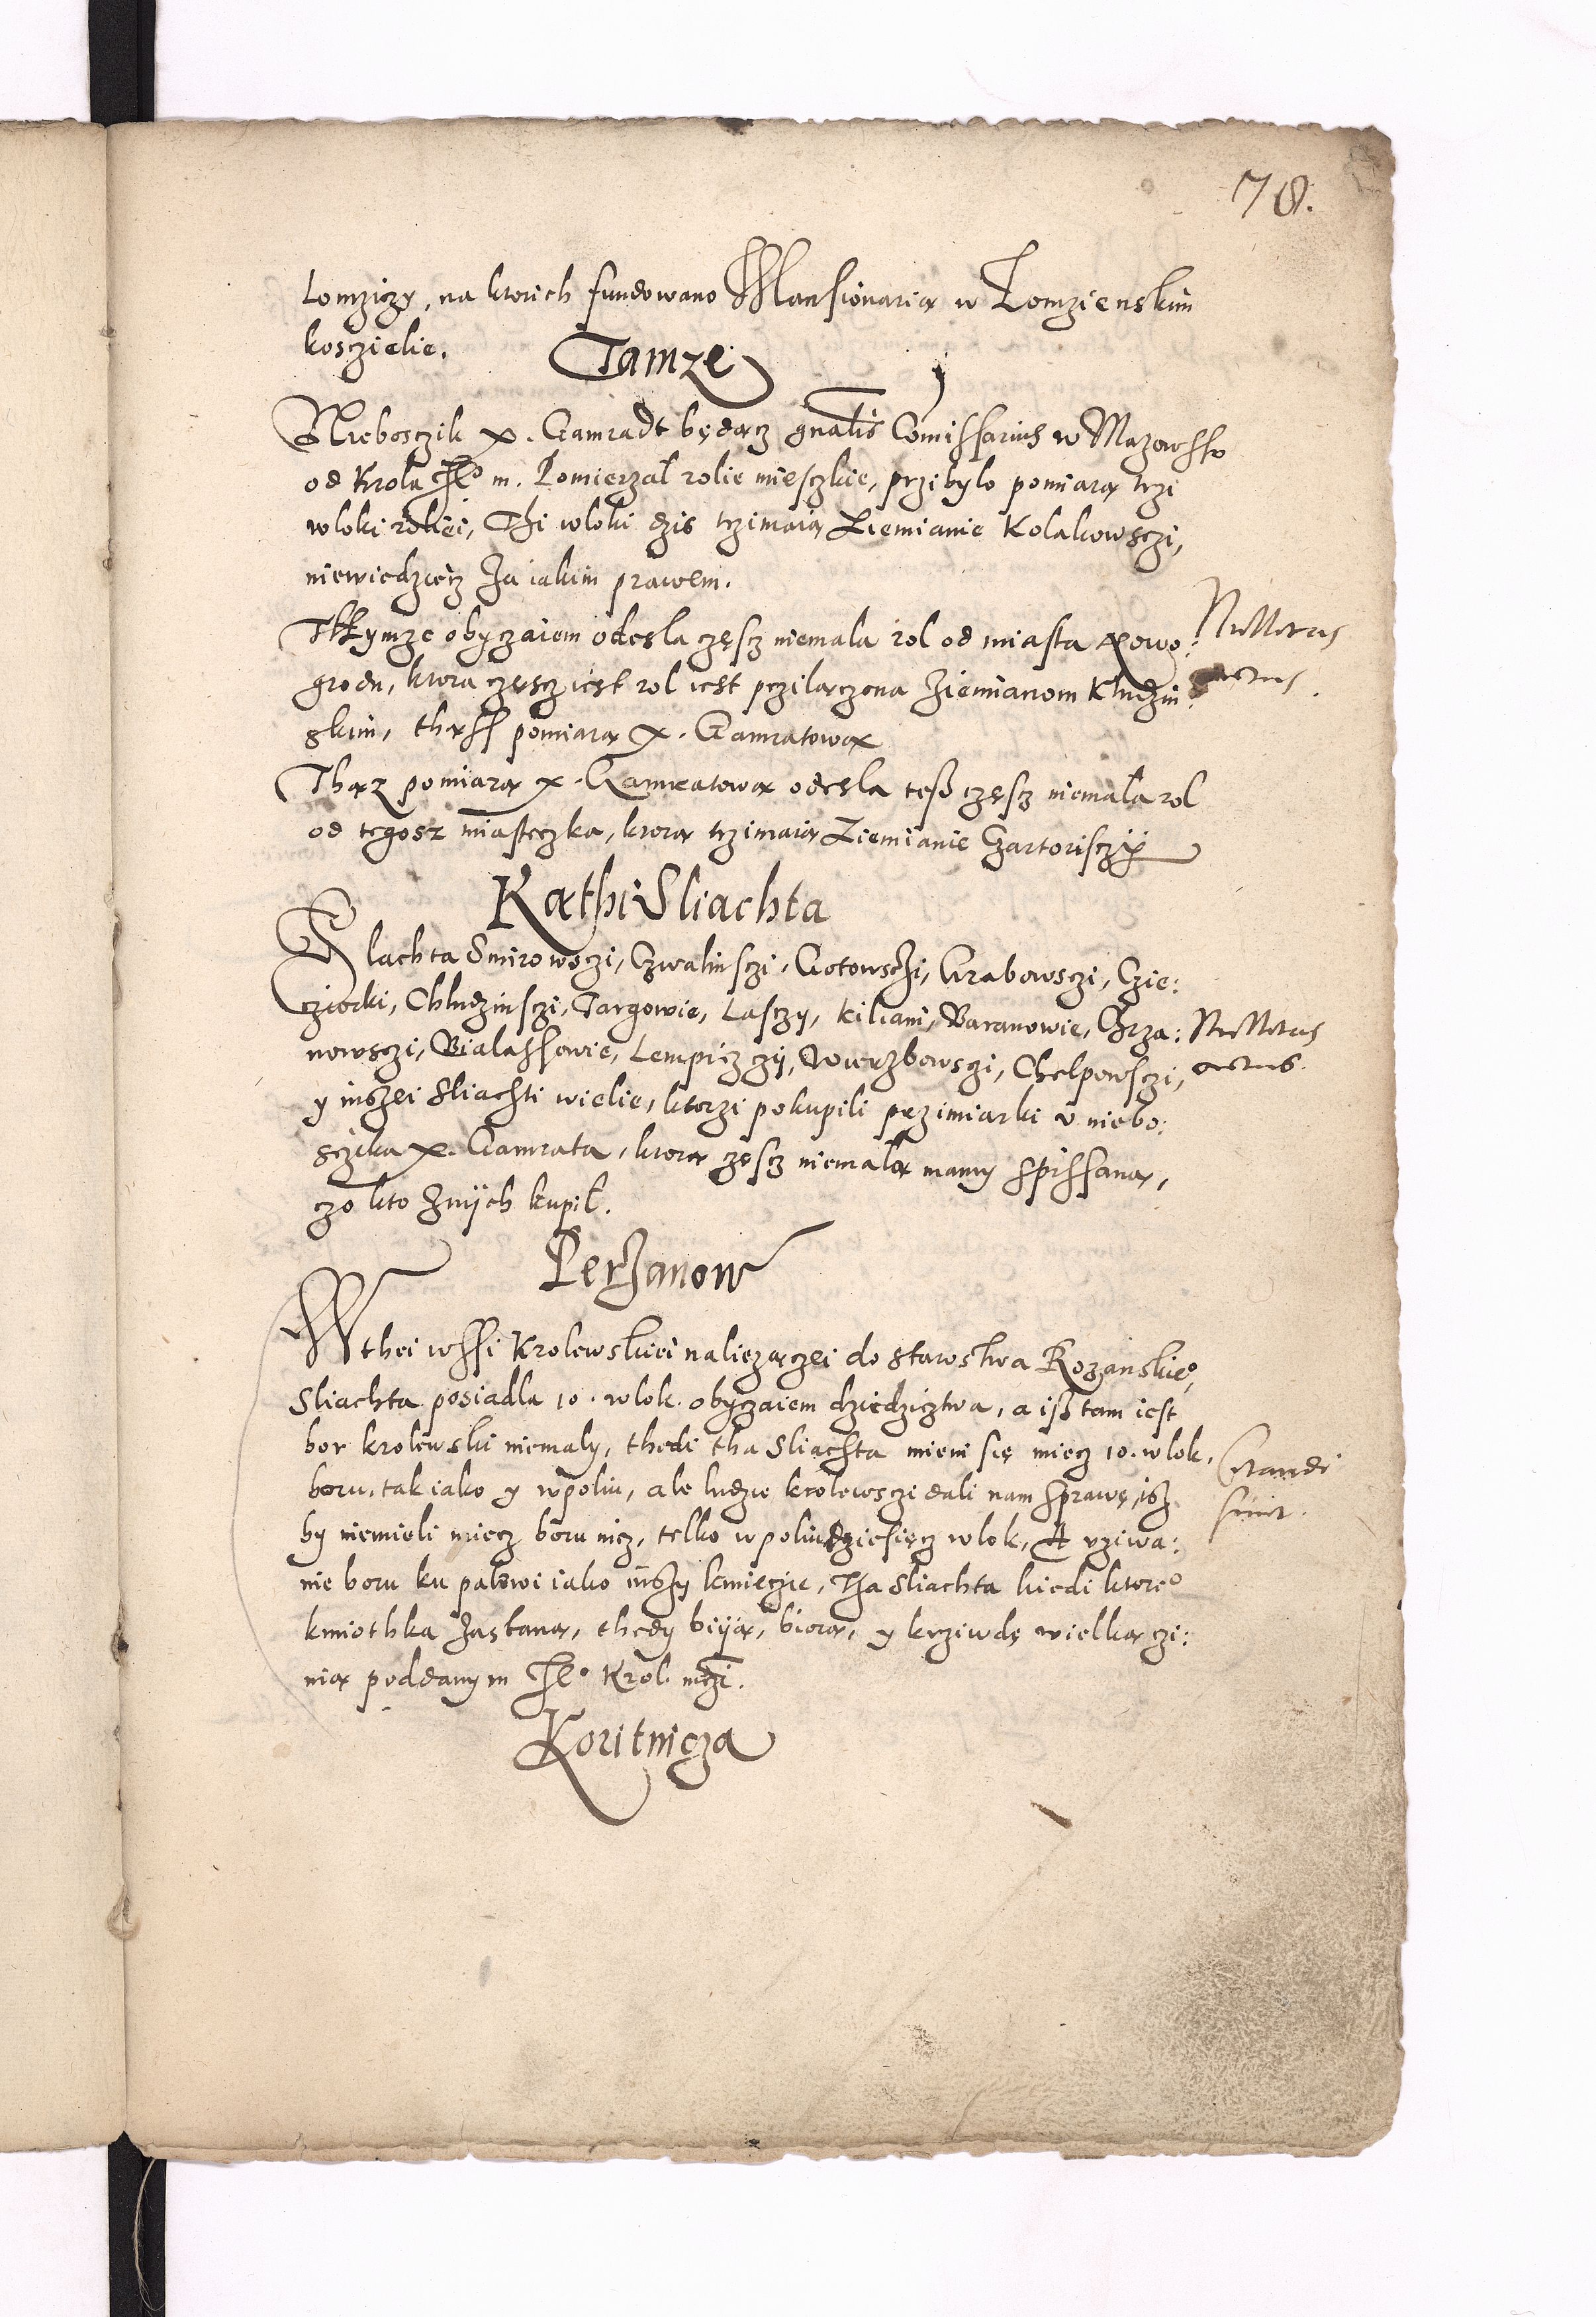 78.
Lomziczy, na ktorich fundowano Mansionarią w Lomzienskim
kosczielie.
Tamze
Nieboszczik X. Gamradt będącz gnalis Comissarius w Mazowsso
od Krola Je° m. Pomierzal rolie mieszkie, przibylo pomiarą trzi
wloki roliei, Thi wloki dzis trzimaią Ziemianie Kolakowsczi,
niewiedziecz za iakim prawem.
Tkkymze obyczaiem odesla częscz niemala rol od miasta Nowo:
grodu, ktora częscz iest rol iest przilączona Ziemianom Kludzin
skim, thąss pomiarą X. Gamratową
Thąz pomiarą X. Gamratową odesla teß częscz niemala rol
od tegosz miasteczka, ktorą trzimaią Ziemianie Czartorisczÿ
Nullitatis
actus.
Kathi Sliachta
Slachta Smirowsczi, Czwalinsczi, Gotowsczi, Grabowsczi, Czie:
cziorki, Chludzinsczi, Targowie, Lasczy, Kiliani, Baranowie, Chrza:
nowsczi, Bialassowie, Lempiczczÿ, Wierzbowsczi, Chelpowsczi,
y inszei Sliachti wielie, ktorzi pokupili przimiarki u niebo:
sczika X. Gamrata, ktorą częscz niemalą mamy spissaną,
czo kto znÿch kupil.
Nullitatis
actus.
Perzanow
W thei wssi Krolewskiei naliezączei do starostwa Rozanskie°,
Sliachta posiadla 10. wlok. obyczaiem dziedzicztwa, a iß tam iest
bor krolewski niemaly, thedi tha Sliachta mieni się miecz 10. wlok.
boru, tak iako y wpoliu, ale ludzie krolewsczi dali nam sprawę, isz
by niemieli miecz boru nicz, telko wpoliu dziesięcz wlok, A uziwa:
nie boru ku palowi iako inszy kmieczie, Tha Sliachta kiedi ktore°
kmiothka zastaną, thedy biÿą, biorą, y krziwdę wielką czi:
nią poddanym Je° Krol. mczi.
Citandi
sunt.
Koritnicza